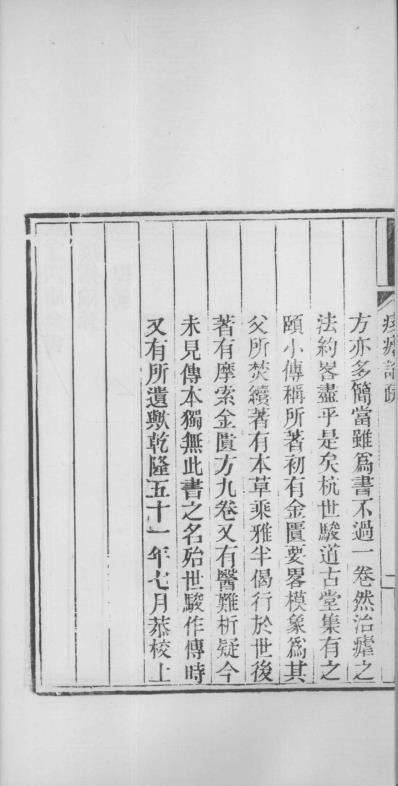 痎瘧論疏
二
方亦多簡當雖爲書不過一卷然治瘧之
法約畧盡乎是矣杭世駿道古堂集有之
頤小傳稱所著初有金匱要畧模象爲其
父所焚續著有本草乘雅半偈行於世後
著有摩索金匱方九卷又有醫難析疑今
未見傳本獨無此書之名殆世駿作傳時
又有所遺歟乾隆五十一年七月恭校上